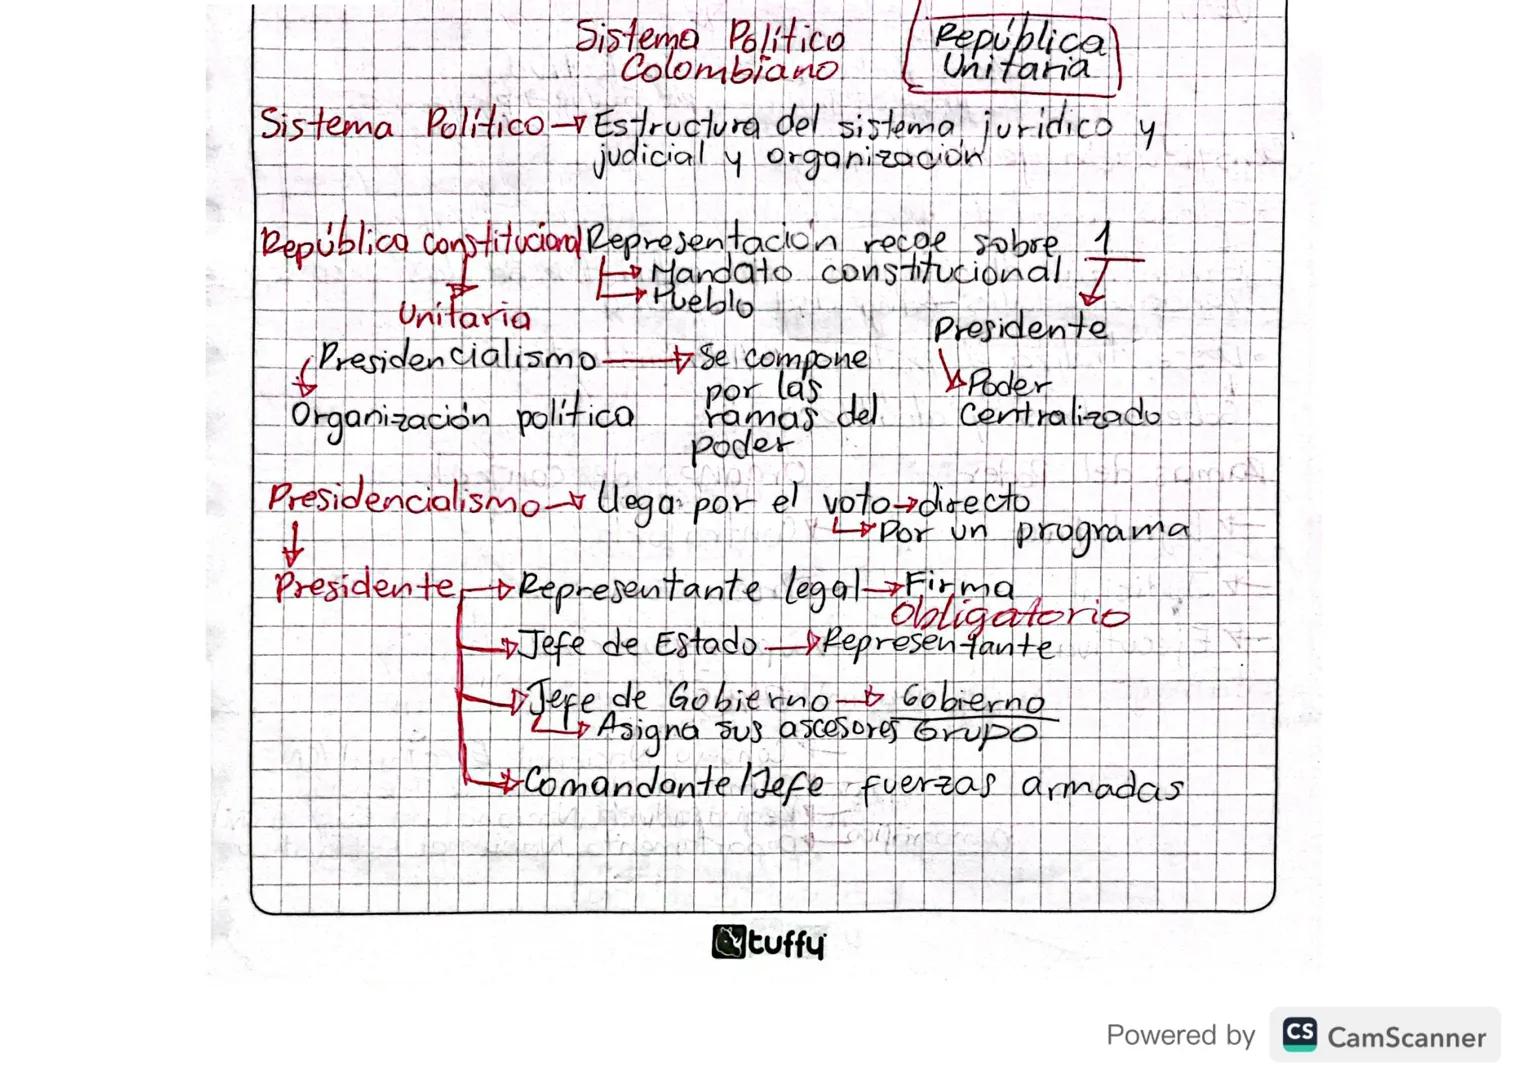 Sistema Político
Colombiano
República
Unitaria
Sistema Político → Estructura del sistema jurídico y
judicial y organización
República constitucional Representación recae sobre 1
→ Mandato constitucional
→ Pueblo
Unitaria
Presidente
Presidencialismo → Se compone
por las
ramas del
poder
→ Poder
Centralizado
Organización política
Presidencialismo → llega por el voto → directo
→ Por un programa
Presidente → Representante legal → Firma
Obligatorio
→ Jefe de Estado → Representante
→ Jefe de Gobierno → Gobierno
→ Asigna sus ascesores Grupo
→ Comandante/Jefe fuerzas armadas
tuffy
Powered by CS CamScanner